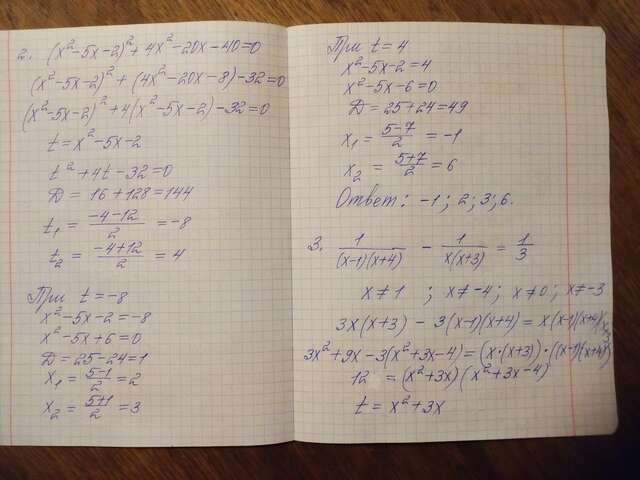 2. (x²-5x-2)²+4x²-20x-40=0
(x²-5x-2)²+(4x²-20x-8)-32=0
(x²-5x-2)²+4(x²-5x-2)-32=0
t=x²-5x-2
t²+4t-32=0
D=16+128=144
t₁=(-4-12)/2=-8
t₂=(-4+12)/2=4
При t=-8
x²-5x-2=-8
x²-5x+6=0
D=25-24=1
x₁=(5-1)/2=2
x₂=(5+1)/2=3
При t=4
x²-5x-2=4
x²-5x-6=0
D=25+24=49
x₁=(5-7)/2=-1
x₂=(5+7)/2=6
Ответ: -1; 2; 3; 6.
3. 1/((x-1)(x+4)) - 1/(x(x+3)) = 1/3
x≠1 ; x≠-4; x≠0; x≠-3
3x(x+3) - 3(x-1)(x+4)=x(x-1)(x+4)(x+3)
3x²+9x-3(x²+3x-4)=(x·(x+3))·((x-1)(x+4))
12 =(x²+3x)(x²+3x-4)
t=x²+3x